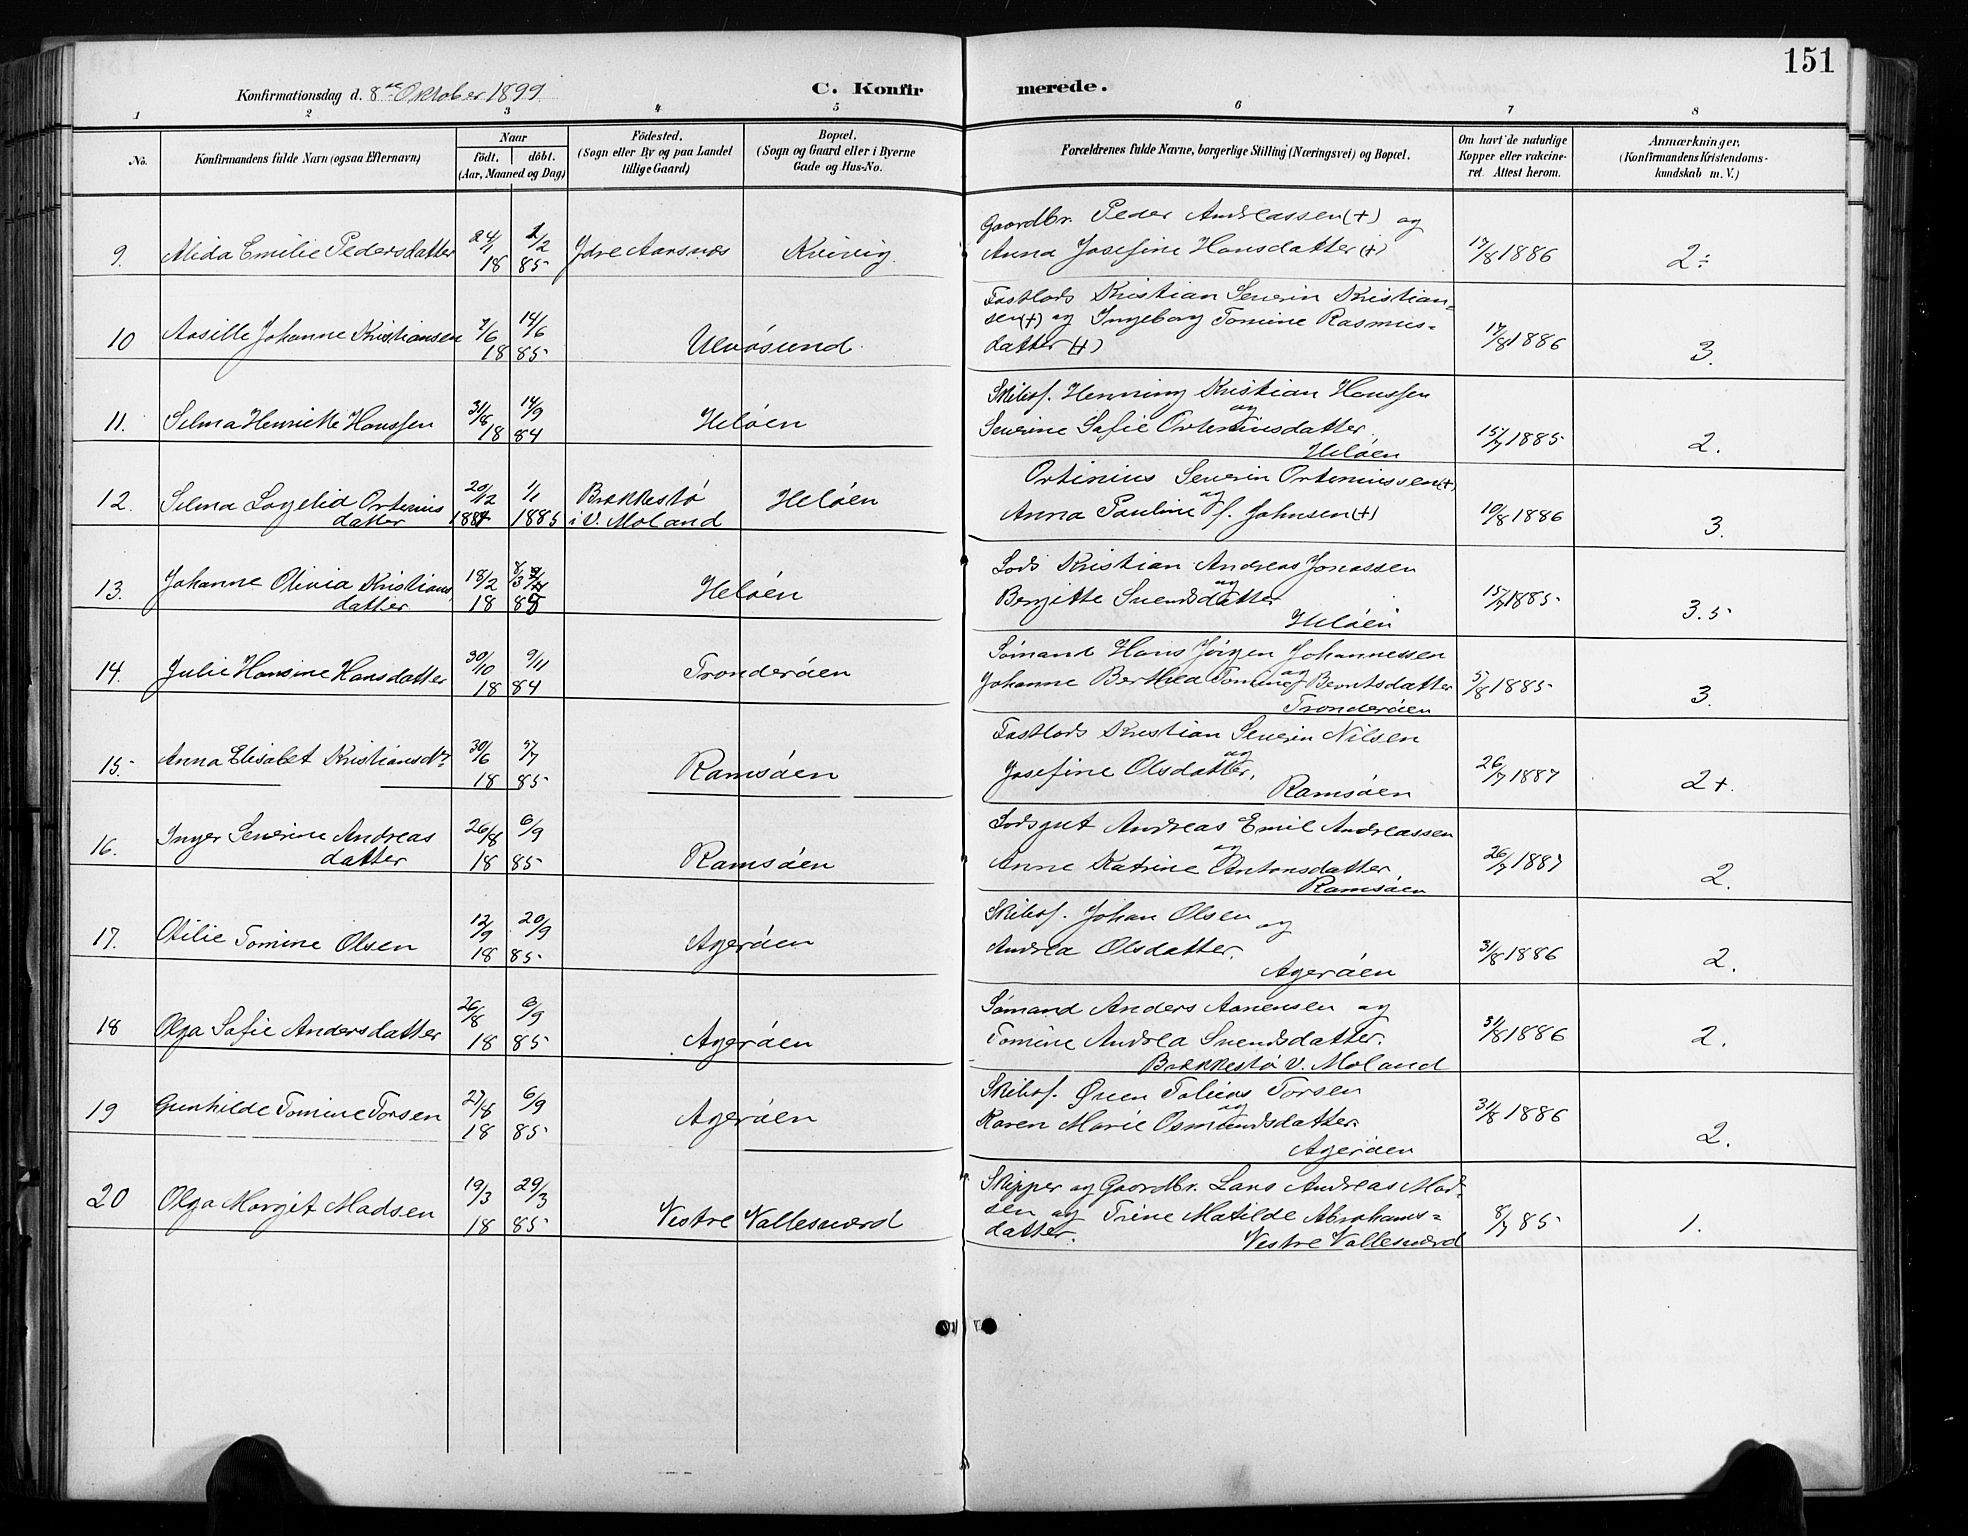 151
Konfirmationsdag d. 8de Oktober 1899
C. Konfirmerede.
1 2 3 4 5 6 7 8
No.
Konfirmandens fulde Navn (ogsaa Efternavn)
Naar
födt. döbt.
(Aar, Maaned og Dag)
Födested.
(Sogn eller By og paa Landet
tillige Gaard)
Bopæl.
(Sogn og Gaard eller i Byerne
Gade og Hus-No.
Forældrenes fulde Navne, borgerlige Stilling (Næringsvei) og Bopæl.
Om havt de naturlige
Kopper eller vakcine-
ret. Attest herom.
Anmærkninger.
(Konfirmandens Kristendoms-
kundskab m. V.)
9. Alida Emilie Pedersdatter 24/1 1/2 18 85 Ydre Aarsnæs Kvivig
Gaardbr. Peder Andreassen (+) og
Anna Josefine Hansdatter (+) 17/8 1886 2÷
10 Aasille Johanne Kristiansen 7/6 14/6 18 85 Ulvösund
Fastlods Kristian Severin Kristian-
sen (+) og Ingeborg Tomine Rasmus=
datter (+) 17/8 1886 3.
11. Selma Henriette Hanssen 31/8 14/9 18 84 Helöen
Skibsf. Henning Kristian Hanssen
og
Severine Sofie Orteniusdatter.
Helöen 15/7 1885 2.
12. Selma Ortenius
datter 20/12 1884 1/1 1885 Brekkestö
i V. Moland Helöen
Ortinius Severin Orteniussen (+)
og
Anna Pauline Johnsen (+) 10/8 1886 3.
13. Johanne Olivia Kristians
datter 18/2 8/3 18 85 Helöen
Lods Kristian Andreas Jonassen
og
Bergitte Svendsdatter
Helöen 15/7 1885 3.5
14. Julie Hansine Hansdatter 30/10 9/11 18 84 Tronderöen
Sømand Hans Jörgen Johannessen
og
Johanne Berthea Tomine Berntsdatter
Tronderöen 5/8 1885 3.
15. Anna Elisabet Kristiansdr 30/6 5/7 18 85 Ramsöen
Fastlods Kristian Severin Nilsen
og
Josefine Olsdatter.
Ramsöen 26/7 1887 2+.
16. Inger Severine Andreas
datter 26/8 6/9 18 85 Ramsöen
Lodsgut Andreas Emil Andreassen
og
Anne Katrine Antonsdatter
Ramsöen 26/7 1887 2.
17. Otilie Tomine Olsen 12/9 20/9 18 85 Ageröen
Skibsf. Johan Olsen
og
Andrea Olsdatter.
Ageröen 31/8 1886 2.
18 Olga Sofie Andersdatter 26/8 6/9 18 85 Ageröen
Sømand Anders Aanensen og
Tomine Andrea Svendsdatter.
Brekkestö V. Moland 31/8 1886 2.
19 Gunhilde Tomine Torsen 27/8 6/9 18 85 Ageröen
Skibsf. Øven Tobias Torsen
og
Karen Marie Osmundsdatter.
Ageröen 31/8 1886 2.
20 Olga Margit Madsen 19/3 29/3 18 85 Vestre Vallesværd
Skipper og Gaardbr. Lars Andreas Mad-
sen og Trine Matilde Abrahams=
datter. Vestre Vallesværd 8/7 85 1.